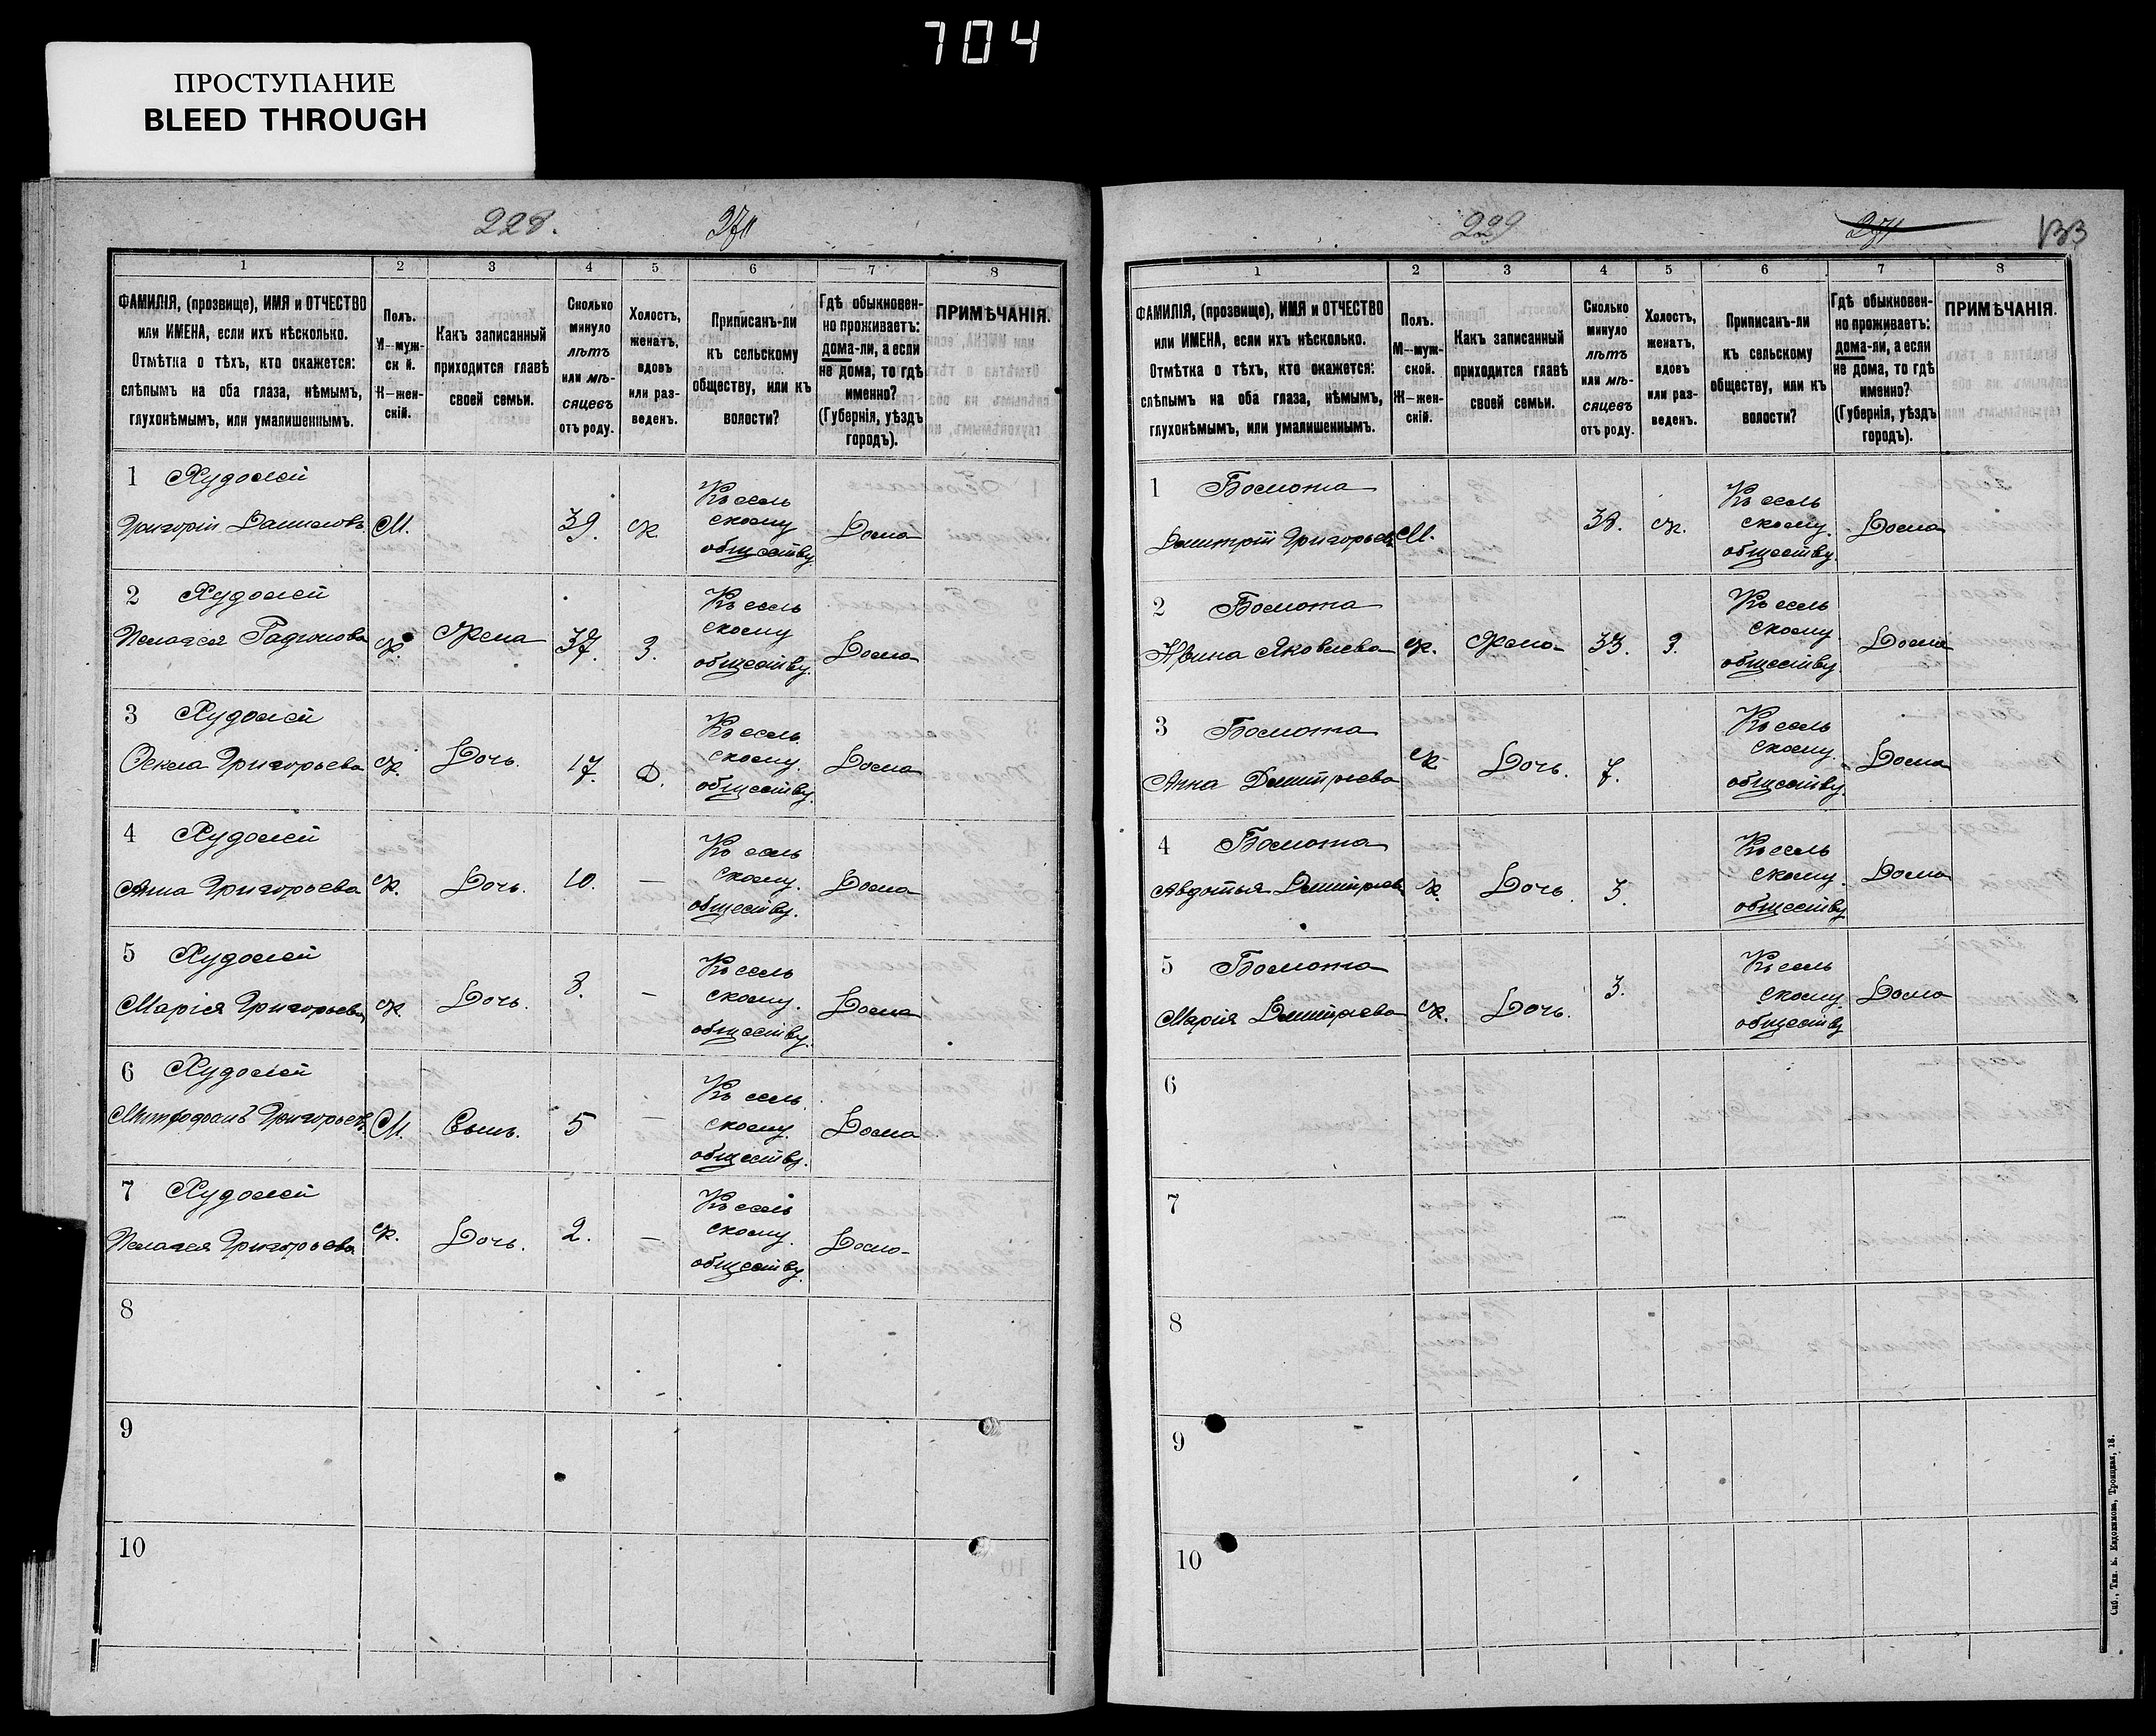 704
ПРОСТУПАНИЕ
BLEED THROUGH
228.
1 2 3 4 5 6 7 8
ФАМИЛІЯ, (прозвище), ИМЯ и ОТЧЕСТВО
или ИМЕНА, если ихъ нѣсколько.
Отмѣтка о тѣхъ, кто окажется:
слѣпымъ на оба глаза, нѣмымъ,
глухонѣмымъ, или умалишеннымъ.
Полъ.
М—муж-
ск й.
Ж—жен-
скій.
Какъ записанный
приходится главѣ
своей семьи.
Сколько
минуло
лѣтъ
или мѣ-
сяцевъ
отъ роду.
Холостъ,
женатъ,
вдовъ
или раз-
веденъ.
Приписанъ-ли
къ сельскому
обществу, или къ
волости?
Гдѣ обыкновен-
но проживаетъ:
дома-ли, а если
не дома, то гдѣ
именно?
(Губернія, уѣздъ
городъ).
ПРИМѢЧАНІЯ.
1 Худолей
Григорій М. 39. ж. Къ сель
скому
обществу. Дома
2 Худолей
Пелагея Ж. Жена 37. З. Къ сель
скому
обществу. Дома
3 Худолей
Фекла Григорьева Ж. Дочь. 17. Д. Къ сель
скому.
обществу. Дома
4 Худолей
Анна Григорьева Ж. Дочь. 10. — Къ сель
скому.
обществу. Дома
5 Худолей
Марія Григорьева Ж. Дочь. 8. — Къ сель
скому.
обществу. Дома
6 Худолей
Митрофанъ Григорьевъ М. Сынъ. 5 — Къ сель
скому.
обществу. Дома
7 Худолей
Пелагея Григорьева Ж. Дочь. 2. — Къ сель
скому.
обществу. Дома
8
9
10
229
133
1 2 3 4 5 6 7 8
ФАМИЛІЯ, (прозвище), ИМЯ и ОТЧЕСТВО
или ИМЕНА, если ихъ нѣсколько.
Отмѣтка о тѣхъ, кто окажется:
слѣпымъ на оба глаза, нѣмымъ,
глухонѣмымъ, или умалишеннымъ.
Полъ.
М—муж-
ской.
Ж—жен-
скій.
Какъ записанный
приходится главѣ
своей семьи.
Сколько
минуло
лѣтъ
или мѣ-
сяцевъ
отъ роду.
Холостъ,
женатъ,
вдовъ
или раз-
веденъ.
Приписанъ-ли
къ сельскому
обществу, или къ
волости?
Гдѣ обыкновен-
но проживаетъ:
дома-ли, а если
не дома, то гдѣ
именно?
(Губернія, уѣздъ
городъ).
ПРИМѢЧАНІЯ.
1 Болюта
Дмитрій Григорьевъ М. 38. ж. Къ сель
скому.
обществу. Дома
2 Болюта
Яковлева Ж. Жена 33. З. Къ сель
скому.
обществу. Дома
3 Болюта
Анна Дмитріева Ж. Дочь. 7. Къ сель
скому.
обществу. Дома
4 Болюта
Авдотья Дмитріева Ж. Дочь 3. Къ сель
скому.
обществу Дома
5 Болюта
Марія Дмитріева Ж. Дочь. 3. Къ сель
скому.
обществу Дома
6
7
8
9
10
Спб., Тип. Троицкая, 18.